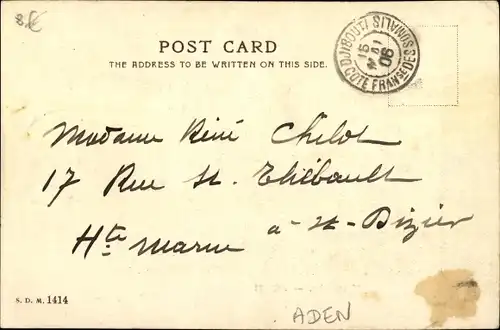 8.€
POST CARD
THE ADDRESS TO BE WRITTEN ON THIS SIDE.
DJIBOUTI COTE FRANSE DES SOMALIS
15
MAI
06
Madame Réné Chelot
17 Rue St. Thiébault
a - St - Dizier
Hte Marne
S. D. M. 1414
ADEN